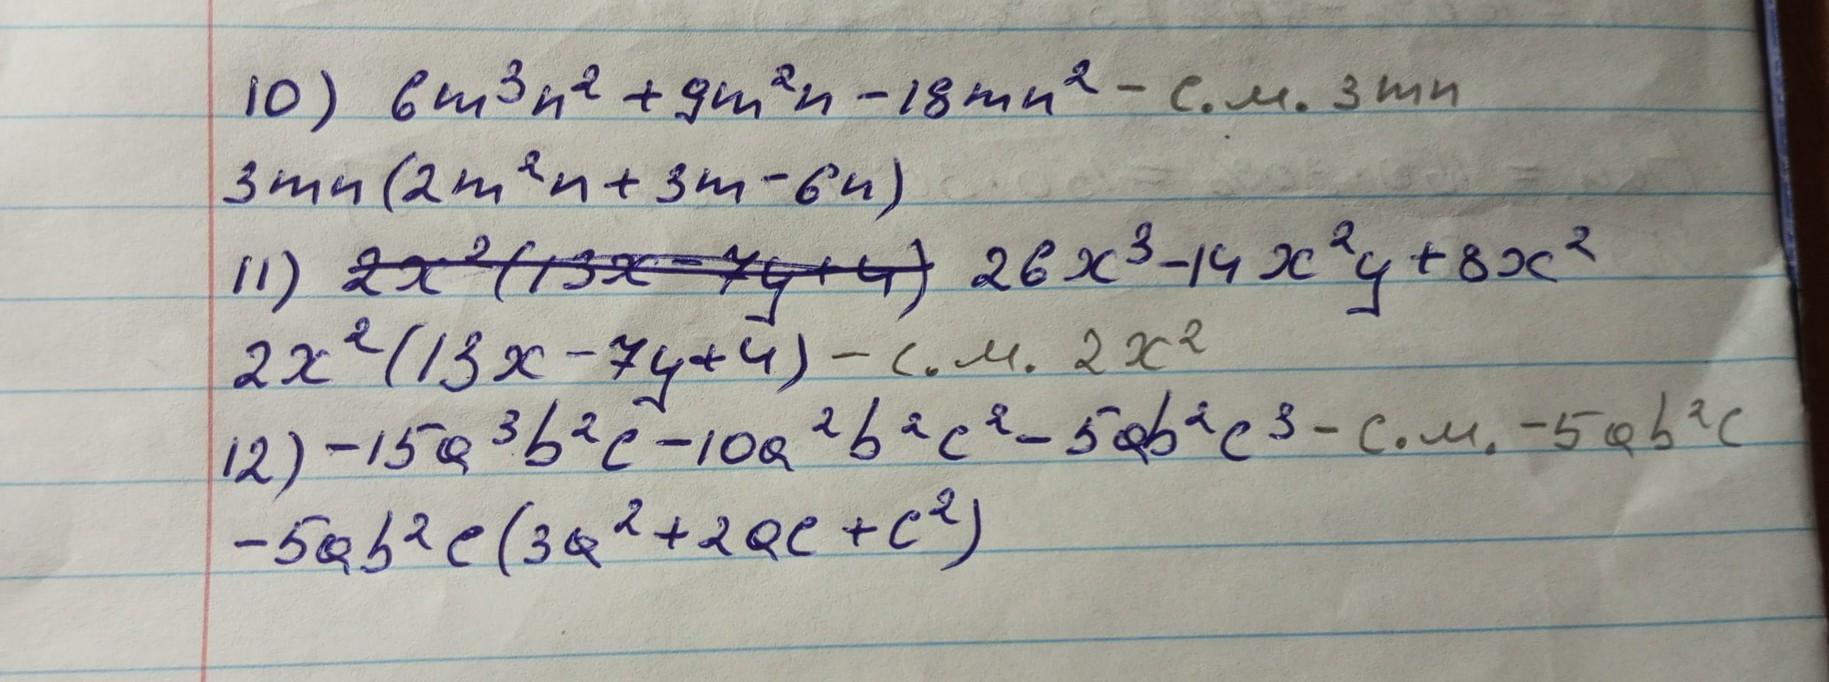 10) 6m³n² + 9m²n - 18mn² - с.м. 3mn
3mn(2m²n + 3m - 6n)
11) 2x²(13x - 7y + 4) 26x³ - 14x²y + 8x²
2x²(13x - 7y + 4) - с.м. 2x²
12) -15a³b²c - 10a²b²c² - 5ab²c³ - с.м. -5ab²c
-5ab²c(3a² + 2ac + c²)